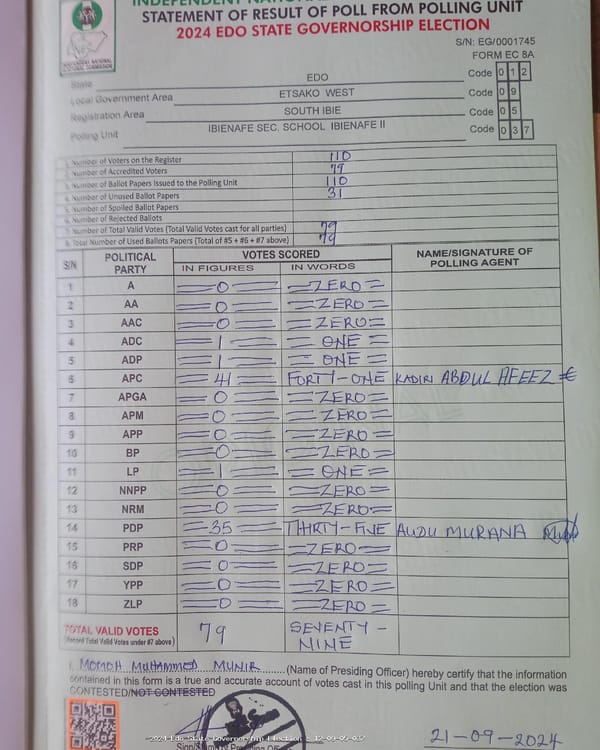 INDEPENDENT
STATEMENT OF RESULT OF POLL FROM POLLING UNIT
2024 EDO STATE GOVERNORSHIP ELECTION
S/N: EG/0001745
FORM EC 8A
State EDO Code 0 1 2
Local Government Area ETSAKO WEST Code 0 9
Registration Area SOUTH IBIE Code 0 5
Polling Unit IBIENAFE SEC. SCHOOL IBIENAFE II Code 0 3 7
1. Number of Voters on the Register 110
2. Number of Accredited Voters 79
3. Number of Ballot Papers Issued to the Polling Unit 110
4. Number of Unused Ballot Papers 31
5. Number of Spoiled Ballot Papers
6. Number of Rejected Ballots
7. Number of Total Valid Votes (Total Valid Votes cast for all parties) 79
8. Total Number of Used Ballots Papers (Total of #5 + #6 + #7 above) 79
S/N POLITICAL PARTY VOTES SCORED NAME/SIGNATURE OF POLLING AGENT
IN FIGURES IN WORDS
1 A 0 ZERO
2 AA 0 ZERO
3 AAC 0 ZERO
4 ADC 1 ONE
5 ADP 1 ONE
6 APC 41 FORTY-ONE KADIRI ABDUL AFEEZ
7 APGA 0 ZERO
8 APM 0 ZERO
9 APP 0 ZERO
10 BP 0 ZERO
11 LP 1 ONE
12 NNPP 0 ZERO
13 NRM 0 ZERO
14 PDP 35 THIRTY-FIVE AUDU MURANA
15 PRP 0 ZERO
16 SDP 0 ZERO
17 YPP 0 ZERO
18 ZLP 0 ZERO
TOTAL VALID VOTES 79 SEVENTY-NINE
(Record Total Valid Votes under #7 above)
I, MOMOH MUHAMMED MUNIR (Name of Presiding Officer) hereby certify that the information
contained in this form is a true and accurate account of votes cast in this polling Unit and that the election was
CONTESTED/NOT CONTESTED
2024 Edo State Governorship Election
21-09-2024